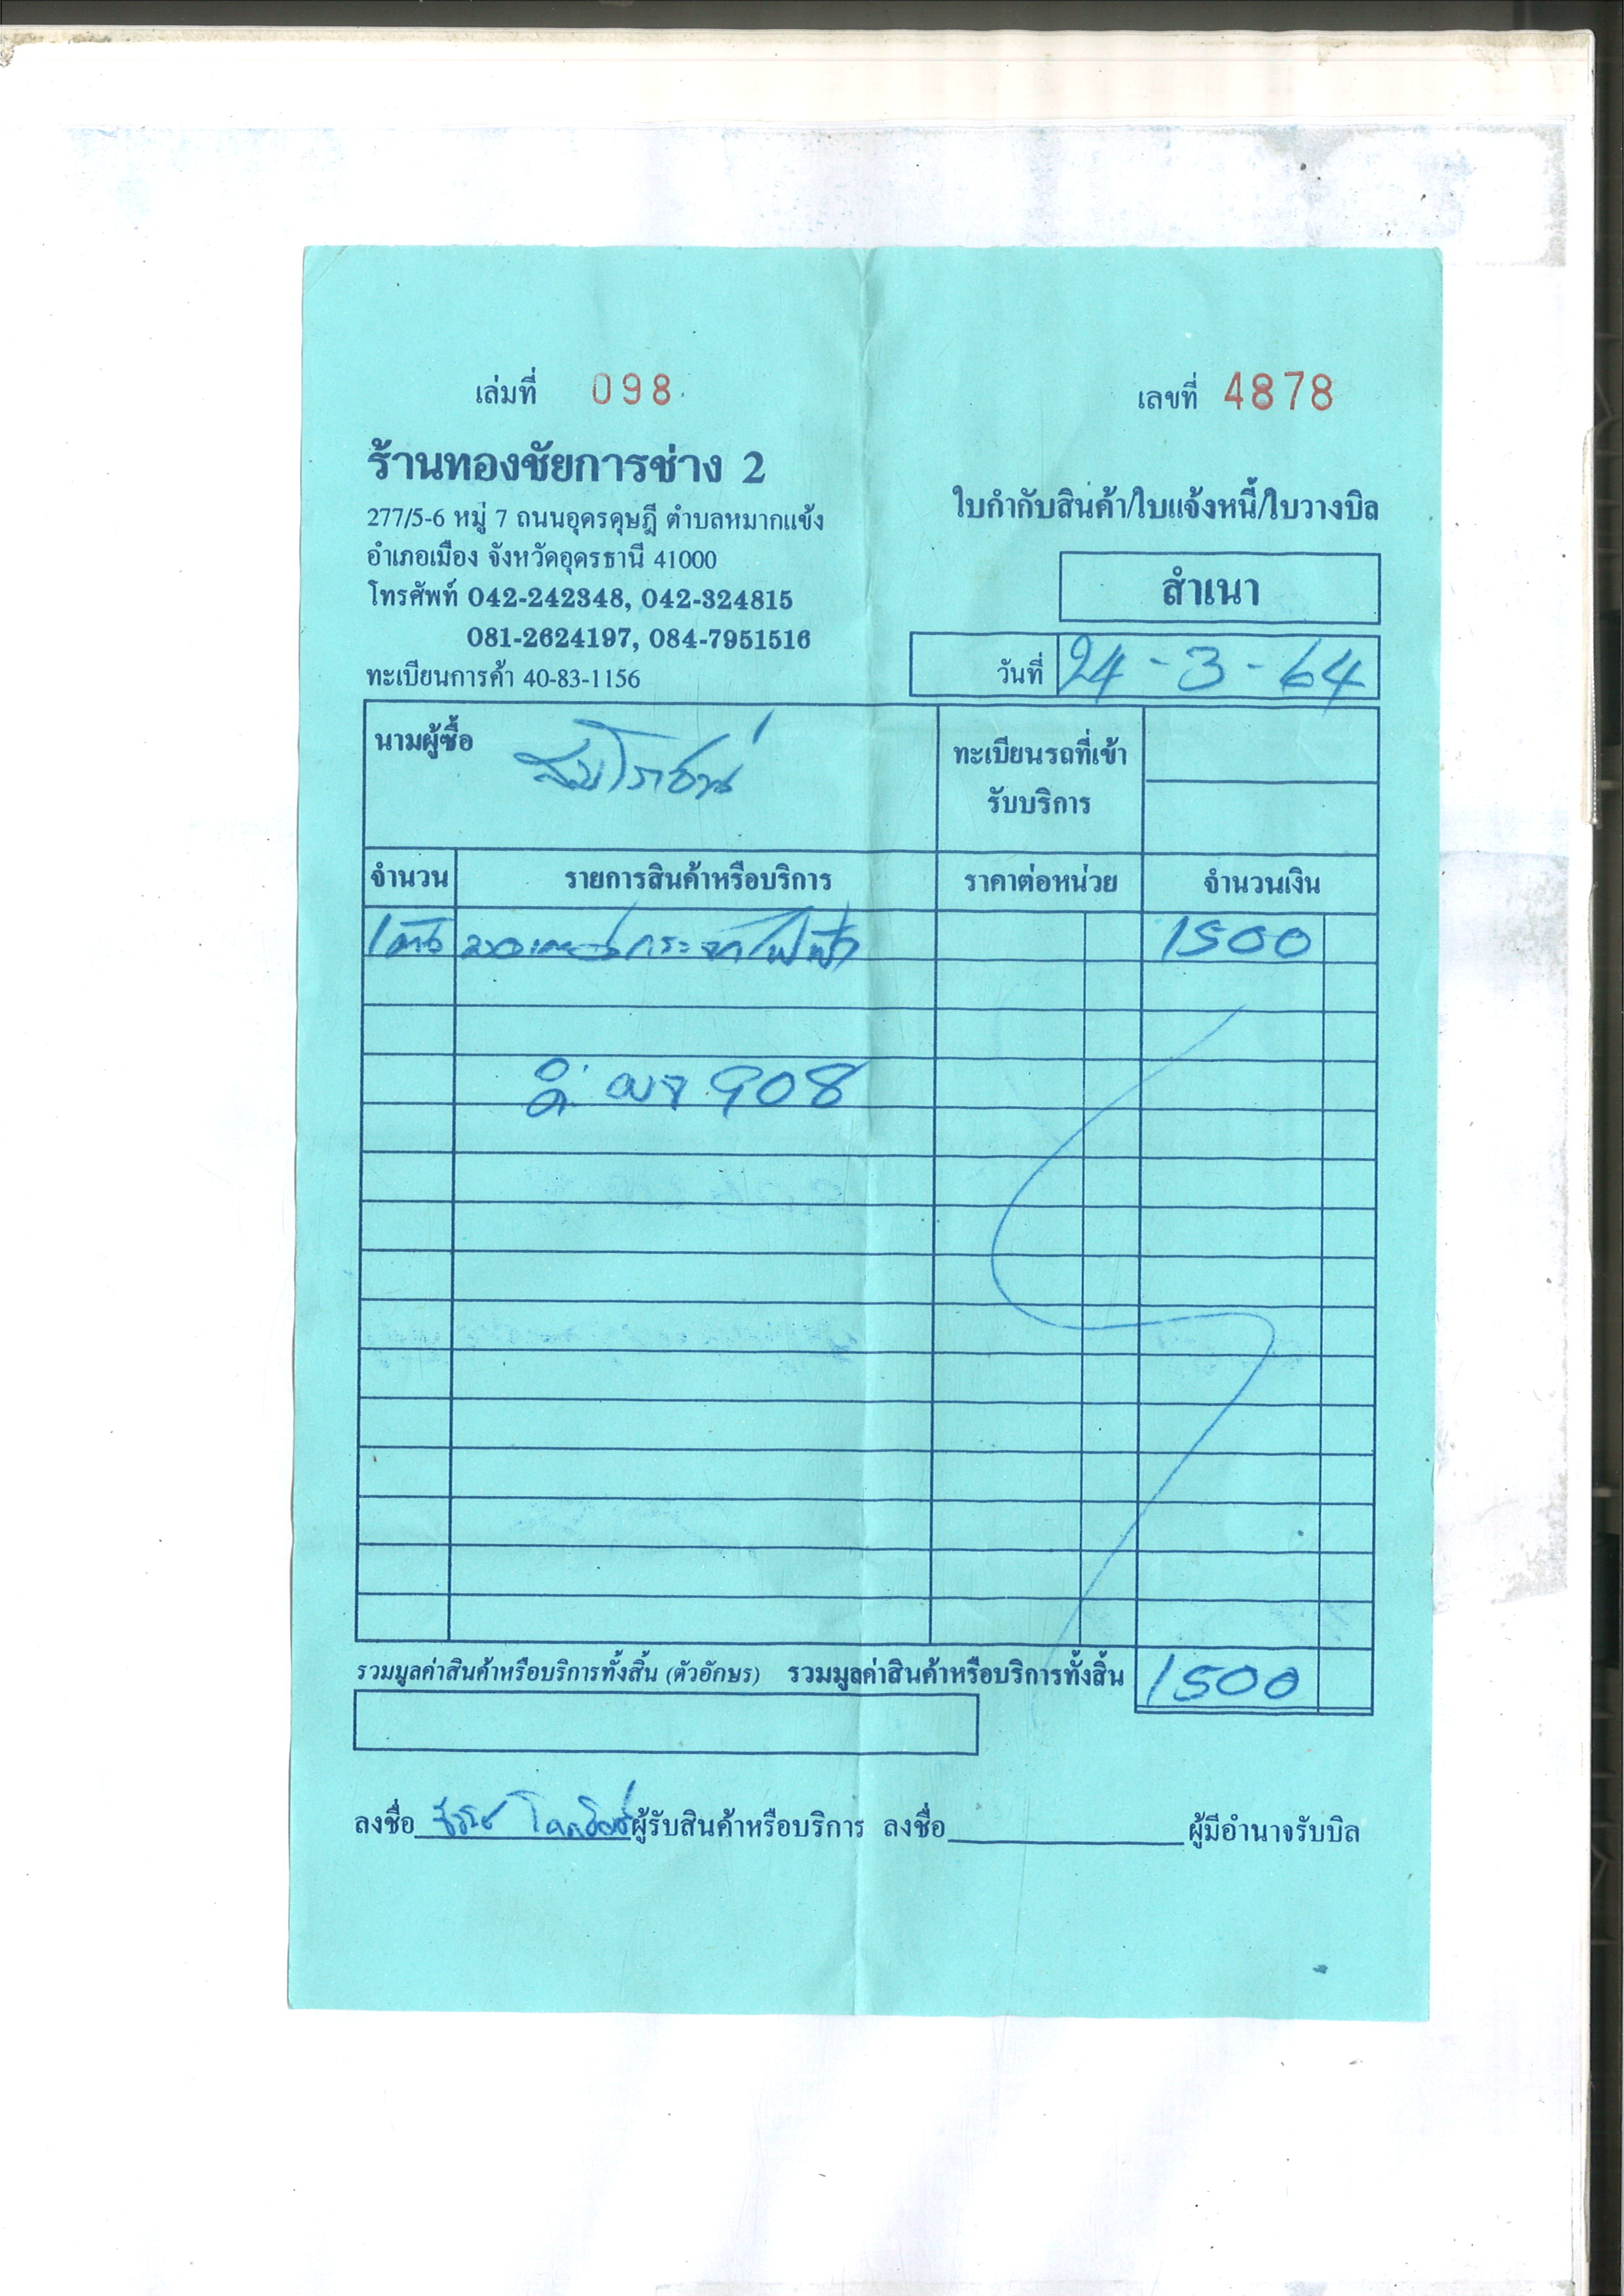 เล่มที่ 098
เลขที่ 4878
ร้านทองชัยการช่าง 2
277/5-6 หมู่ 7 ถนนอุดรดุษฎี ตำบลหมากแข้ง
อำเภอเมือง จังหวัดอุดรธานี 41000
โทรศัพท์ 042-242348, 042-324815
081-2624197, 084-7951516
ทะเบียนการค้า 40-83-1156
ใบกำกับสินค้า/ใบแจ้งหนี้/ใบวางบิล
สำเนา
วันที่ 24-3-64
นามผู้ซื้อ
ทะเบียนรถที่เข้า
รับบริการ
จำนวน รายการสินค้าหรือบริการ ราคาต่อหน่วย จำนวนเงิน
1 มอเตอร์กระจกไฟฟ้า 1500
908
รวมมูลค่าสินค้าหรือบริการทั้งสิ้น (ตัวอักษร) รวมมูลค่าสินค้าหรือบริการทั้งสิ้น 1500
ลงชื่อ ผู้รับสินค้าหรือบริการ ลงชื่อ ผู้มีอำนาจรับบิล